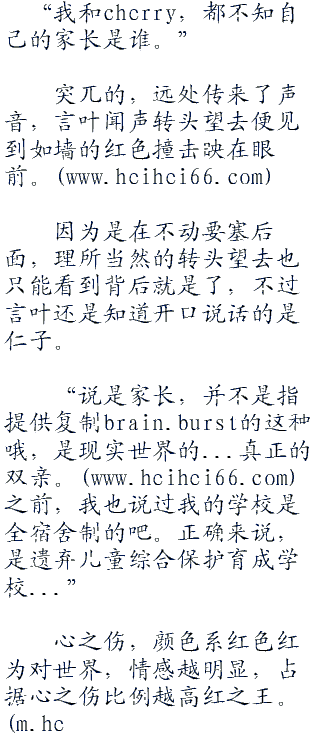 “我和cherry，都不知自
己的家长是谁。”
突兀的，远处传来了声
音，言叶闻声转头望去便见
到如墙的红色撞击映在眼
前。(www.hcihci66.com)
因为是在不动要塞后
面，理所当然的转头望去也
只能看到背后就是了，不过
言叶还是知道开口说话的是
仁子。
“说是家长，并不是指
提供复制brain.burst的这种
哦，是现实世界的...真正的
双亲。(www.hcihci66.com)
之前，我也说过我的学校是
全宿舍制的吧。正确来说，
是遗弃儿童综合保护育成学
校...”
心之伤，颜色系红色红
为对世界，情感越明显，占
据心之伤比例越高红之王。
(m.hc